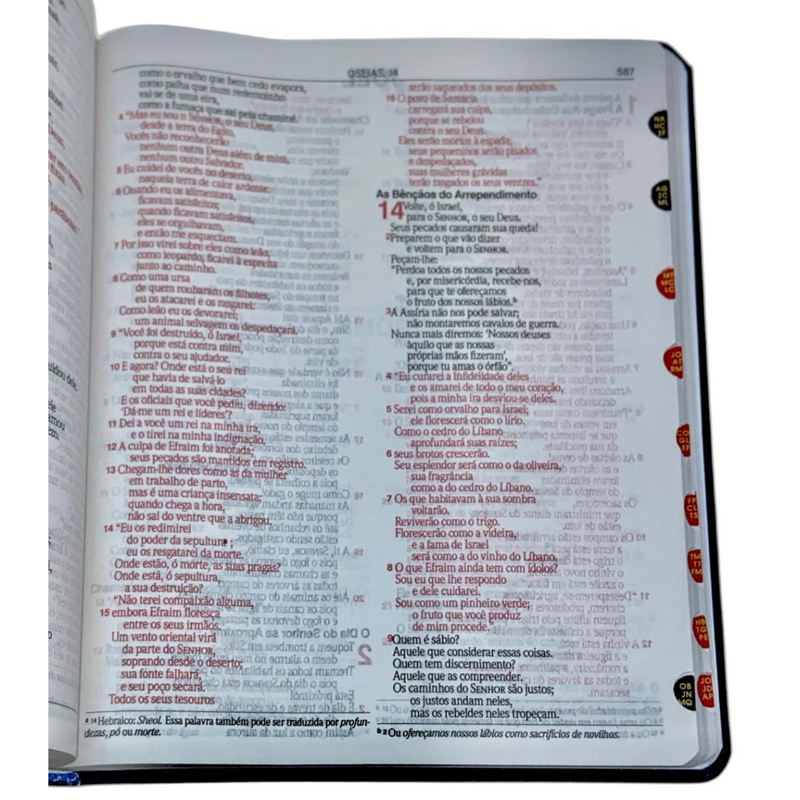 OSEIAS, 14
587
como o orvalho que bem cedo evapora,
como palha que num redemoinho
vai-se de uma eira,
como a fumaça que sai pela chaminé.
4 "Mas eu sou o SENHOR, o seu Deus,
desde a terra do Egito.
Vocês não reconhecerão
nenhum outro Deus além de mim,
nenhum outro Salvador.
5 Eu cuidei de vocês no deserto,
naquela terra de calor ardente.
6 Quando eu os alimentava,
ficavam satisfeitos;
quando ficavam satisfeitos,
eles se orgulhavam,
e então me esqueciam.
7 Por isso virei sobre eles como leão,
como leopardo, ficarei à espreita
junto ao caminho.
8 Como uma ursa
de quem roubaram os filhotes,
eu os atacarei e os rasgarei.
Como leão eu os devorarei;
um animal selvagem os despedaçará.
9 "Você foi destruído, ó Israel,
porque está contra mim,
contra o seu ajudador.
10 E agora? Onde está o seu rei
que havia de salvá-lo
em todas as suas cidades?
E os oficiais que você pediu, dizendo:
'Dá-me um rei e líderes'?
11 Dei a você um rei na minha ira,
e o tirei na minha indignação.
12 A culpa de Efraim foi anotada;
seus pecados são mantidos em registro.
13 Chegam-lhe dores como as da mulher
em trabalho de parto,
mas é uma criança insensata;
quando chega a hora,
não sai do ventre que a abrigou.
14 "Eu os redimirei
do poder da sepultura;
eu os resgatarei da morte.
Onde estão, ó morte, as suas pragas?
Onde está, ó sepultura,
a sua destruição?
"Não terei compaixão alguma,
15 embora Efraim floresça
entre os seus irmãos.
Um vento oriental virá
da parte do SENHOR,
soprando desde o deserto;
sua fonte falhará,
e seu poço secará.
Todos os seus tesouros
a 14 Hebraico: Sheol. Essa palavra também pode ser traduzida por profun-
dezas, pó ou morte.
serão saqueados dos seus depósitos.
16 O povo de Samaria
carregará sua culpa,
porque se rebelou
contra o seu Deus.
Eles serão mortos à espada;
seus pequeninos serão pisados
e despedaçados,
suas mulheres grávidas
terão rasgados os seus ventres."
As Bênçãos do Arrependimento
14 Volte, ó Israel,
para o SENHOR, o seu Deus.
Seus pecados causaram sua queda!
2 Preparem o que vão dizer
e voltem para o SENHOR.
Peçam-lhe:
"Perdoa todos os nossos pecados
e, por misericórdia, recebe-nos,
para que te ofereçamos
o fruto dos nossos lábios.b
3 A Assíria não nos pode salvar;
não montaremos cavalos de guerra.
Nunca mais diremos: 'Nossos deuses
àquilo que as nossas
próprias mãos fizeram',
porque tu amas o órfão".
4 "Eu curarei a infidelidade deles
e os amarei de todo o meu coração,
pois a minha ira desviou-se deles.
5 Serei como orvalho para Israel;
ele florescerá como o lírio.
Como o cedro do Líbano
aprofundará suas raízes;
6 seus brotos crescerão.
Seu esplendor será como o da oliveira,
sua fragrância
como a do cedro do Líbano.
7 Os que habitavam à sua sombra
voltarão.
Reviverão como o trigo.
Florescerão como a videira,
e a fama de Israel
será como a do vinho do Líbano.
8 O que Efraim ainda tem com ídolos?
Sou eu que lhe respondo
e dele cuidarei.
Sou como um pinheiro verde;
o fruto que você produz
de mim procede."
9 Quem é sábio?
Aquele que considerar essas coisas.
Quem tem discernimento?
Aquele que as compreender.
Os caminhos do SENHOR são justos;
os justos andam neles,
mas os rebeldes neles tropeçam.
b 2 Ou ofereçamos nossos lábios como sacrifícios de novilhos.
NA
HC
SF
AG
ZC
ML
MT
MC
LC
JO
AT
RM
CO
GL
EF
FP
CL
TS
TM
TT
FM
HB
TG
PE
OB
JN
MQ
JO
JD
AP